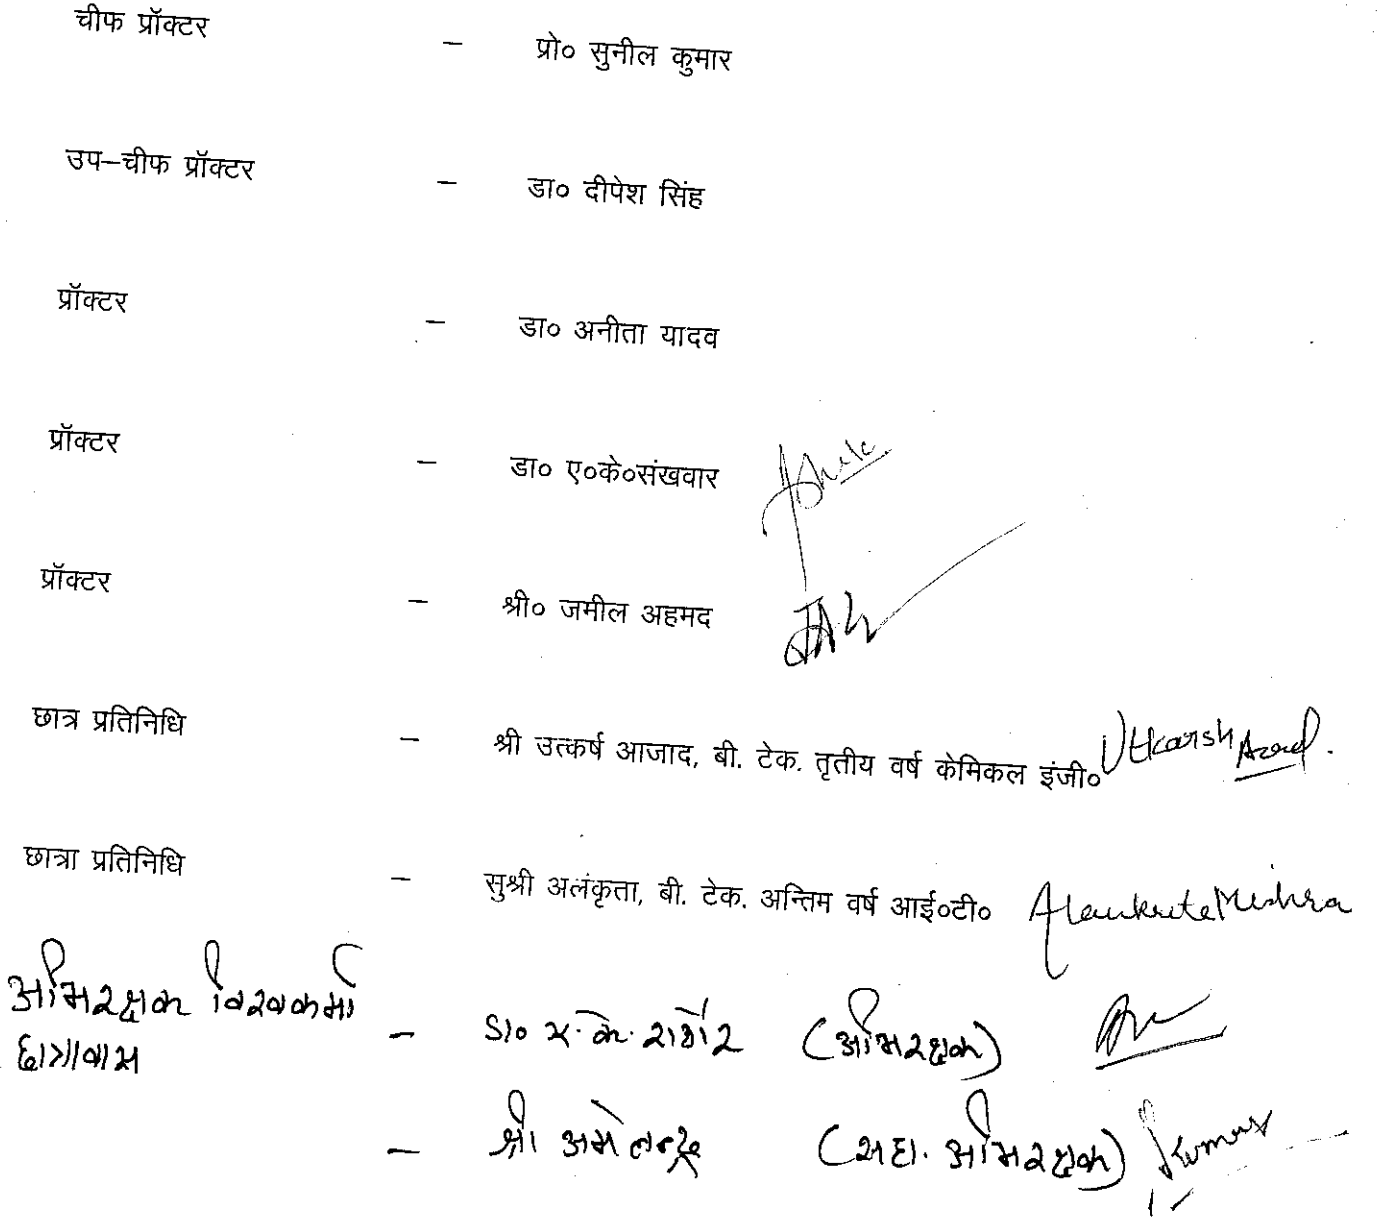 चीफ प्रॉक्टर – प्रो० सुनील कुमार
उप–चीफ प्रॉक्टर – डा० दीपेश सिंह
प्रॉक्टर – डा० अनीता यादव
प्रॉक्टर – डा० ए०के०संखवार
प्रॉक्टर – श्री० जमील अहमद
छात्र प्रतिनिधि – श्री उत्कर्ष आजाद, बी. टेक. तृतीय वर्ष केमिकल इंजी० Utkarsh Azad.
छात्रा प्रतिनिधि – सुश्री अलंकृता, बी. टेक. अन्तिम वर्ष आई०टी० Alankrita Mishra
अभिरक्षक विश्वकर्मा – डा० ए.के. राठौर (अभिरक्षक)
छात्रावास
– श्री (सहा. अभिरक्षक) Kumar